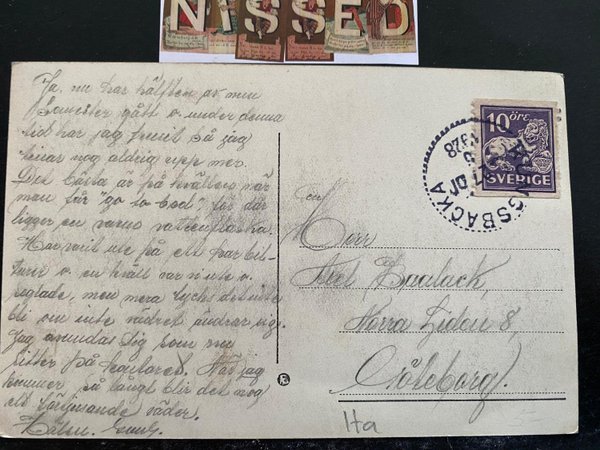 NISSED
Ja, nu har hälften av min
Semester gått o under denna
tid har jag frusit så jag
tinar nog aldrig upp mer.
Det bästa är på kvällen när
man får "go to bed" för där
ligger en varm vattenflaska.
Har varit ute på ett par bil-
turer o en kväll var vi ute o
seglade, men mera lyck det inte
bli om inte vädret ändrar sig.
Jag avundas Dig som nu
sitter på
kommer så långt blir det nog
ett värmande väder.
Hälsn.
10 ÖRE
SVERIGE
KUNGSBACKA
28
Herr
Axel Baalack,
Norra Liden 8,
Göteborg.
Ha